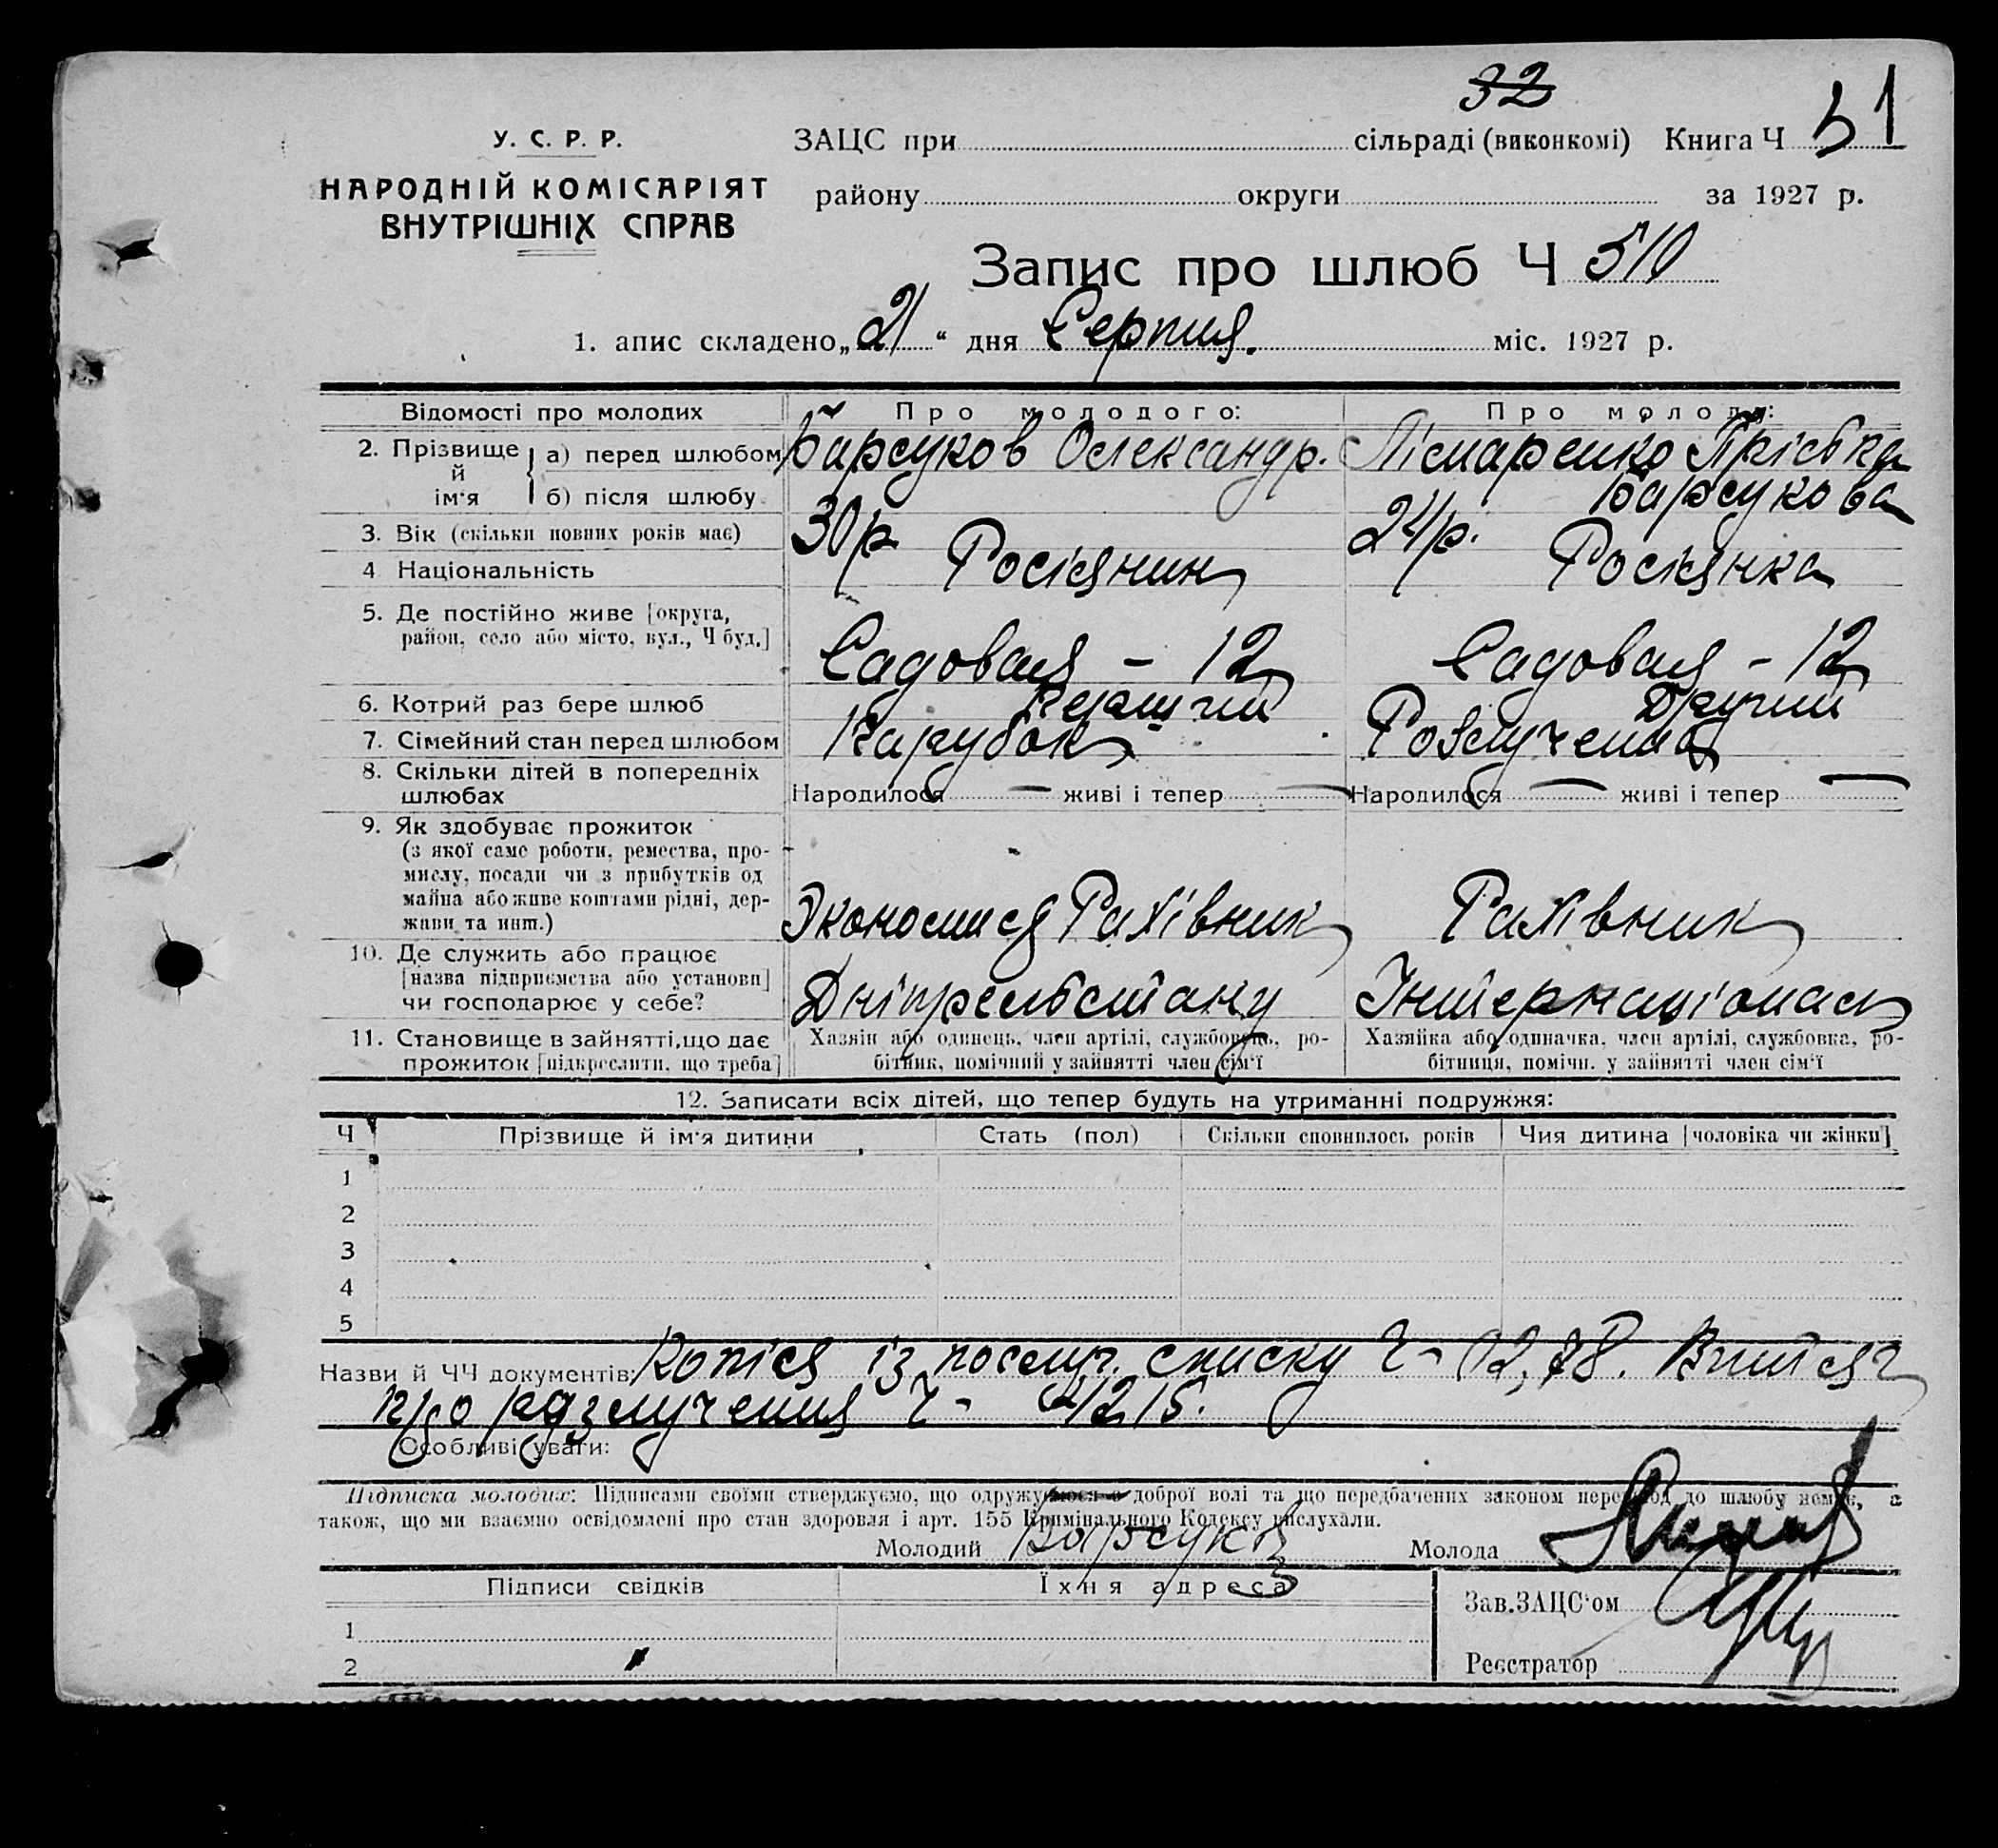 32
У. С. Р. Р.
ЗАЦС при сільраді (виконкомі) Книга Ч 51
НАРОДНІЙ КОМІСАРІЯТ
ВНУТРІШНІХ СПРАВ
району округи за 1927 р.
Запис про шлюб Ч 510
1. апис складено „21“ дня Серпня. міс. 1927 р.
Відомості про молодих Про молодого: Про молоду:
2. Прізвище й ім'я а) перед шлюбом Барсуков Олександр.
б) після шлюбу Барсукова
3. Вік (скільки повних років має) 30 р. 24 р.
4 Національність Росіянин Росіянка
5. Де постійно живе [округа,
район, село або місто, вул., Ч буд.]
Садовая – 12 Садовая – 12
6. Котрий раз бере шлюб Перший Другий
7. Сімейний стан перед шлюбом Парубок Розлучена
8. Скільки дітей в попередніх
шлюбах Народилося — живі і тепер — Народилося — живі і тепер —
9. Як здобуває прожиток
(з якої саме роботи, ремества, про-
мислу, посади чи з прибутків од
майна або живе коштами рідні, дер-
жави та инш.) Рахівник Рахівник
10. Де служить або працює
[назва підприємства або установи]
чи господарює у себе? Інтернаціонал
11. Становище в зайнятті, що дає Хазяін або одинець, член артілі, службовець, ро- Хазяйка або одиначка, член артілі, службовка, ро-
прожиток [підкреслити, що треба] бітник, помічний у зайнятті член сім'ї бітниця, помічн. у зайнятті член сім'ї
12. Записати всіх дітей, що тепер будуть на утриманні подружжя:
Ч Прізвище й ім'я дитини Стать (пол) Скільки сповнилось років Чия дитина [чоловіка чи жінки]
1
2
3
4
5
Назви й ЧЧ документів: Копія із послуж. списку Ч- Витяг
про розлучення Ч- 4215.
Особливі уваги:
Підписка молодих: Підписами своїми стверджуємо, що одружуємося з доброї волі та що передбачених законом перешкод до шлюбу немає, а
також, що ми взаємно освідомлені про стан здоровля і арт. 155 Кримінального Кодексу вислухали.
Молодий Барсуков Молода
Підписи свідків Їхня адреса
Зав.ЗАЦС'ом
1
2 Реєстратор